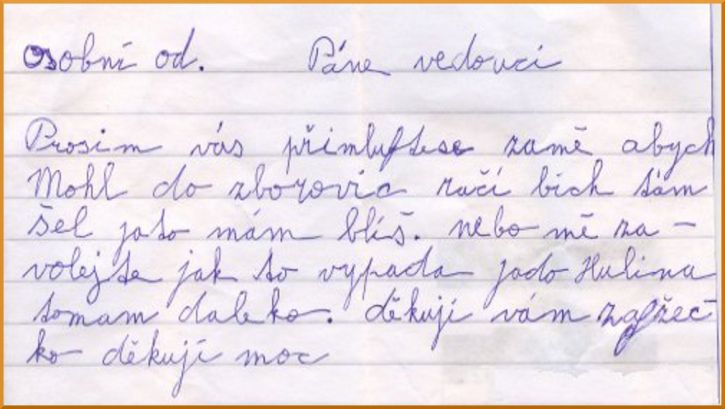 Osobní od. Páne vedoucí
Prosim vás přimluftese zamě abych
Mohl do zborovic račí bich tam
šel jato mám blíš. nebo mě za-
volejte jak to vypada jado Hulina
tomam daleko. děkují vám zafžeč-
ko děkují moc